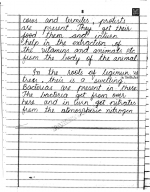 cows and termites, protists
are present. They get their
food them and inturn
help in the extraction of
the vitamins and animals etc
from the body of the animal
In the roots of legimin
trees, their is a swelling
Bacterias are present in these.
The bacteria get from over
here and in turn get nitrates
from the atmospheric nitrogen